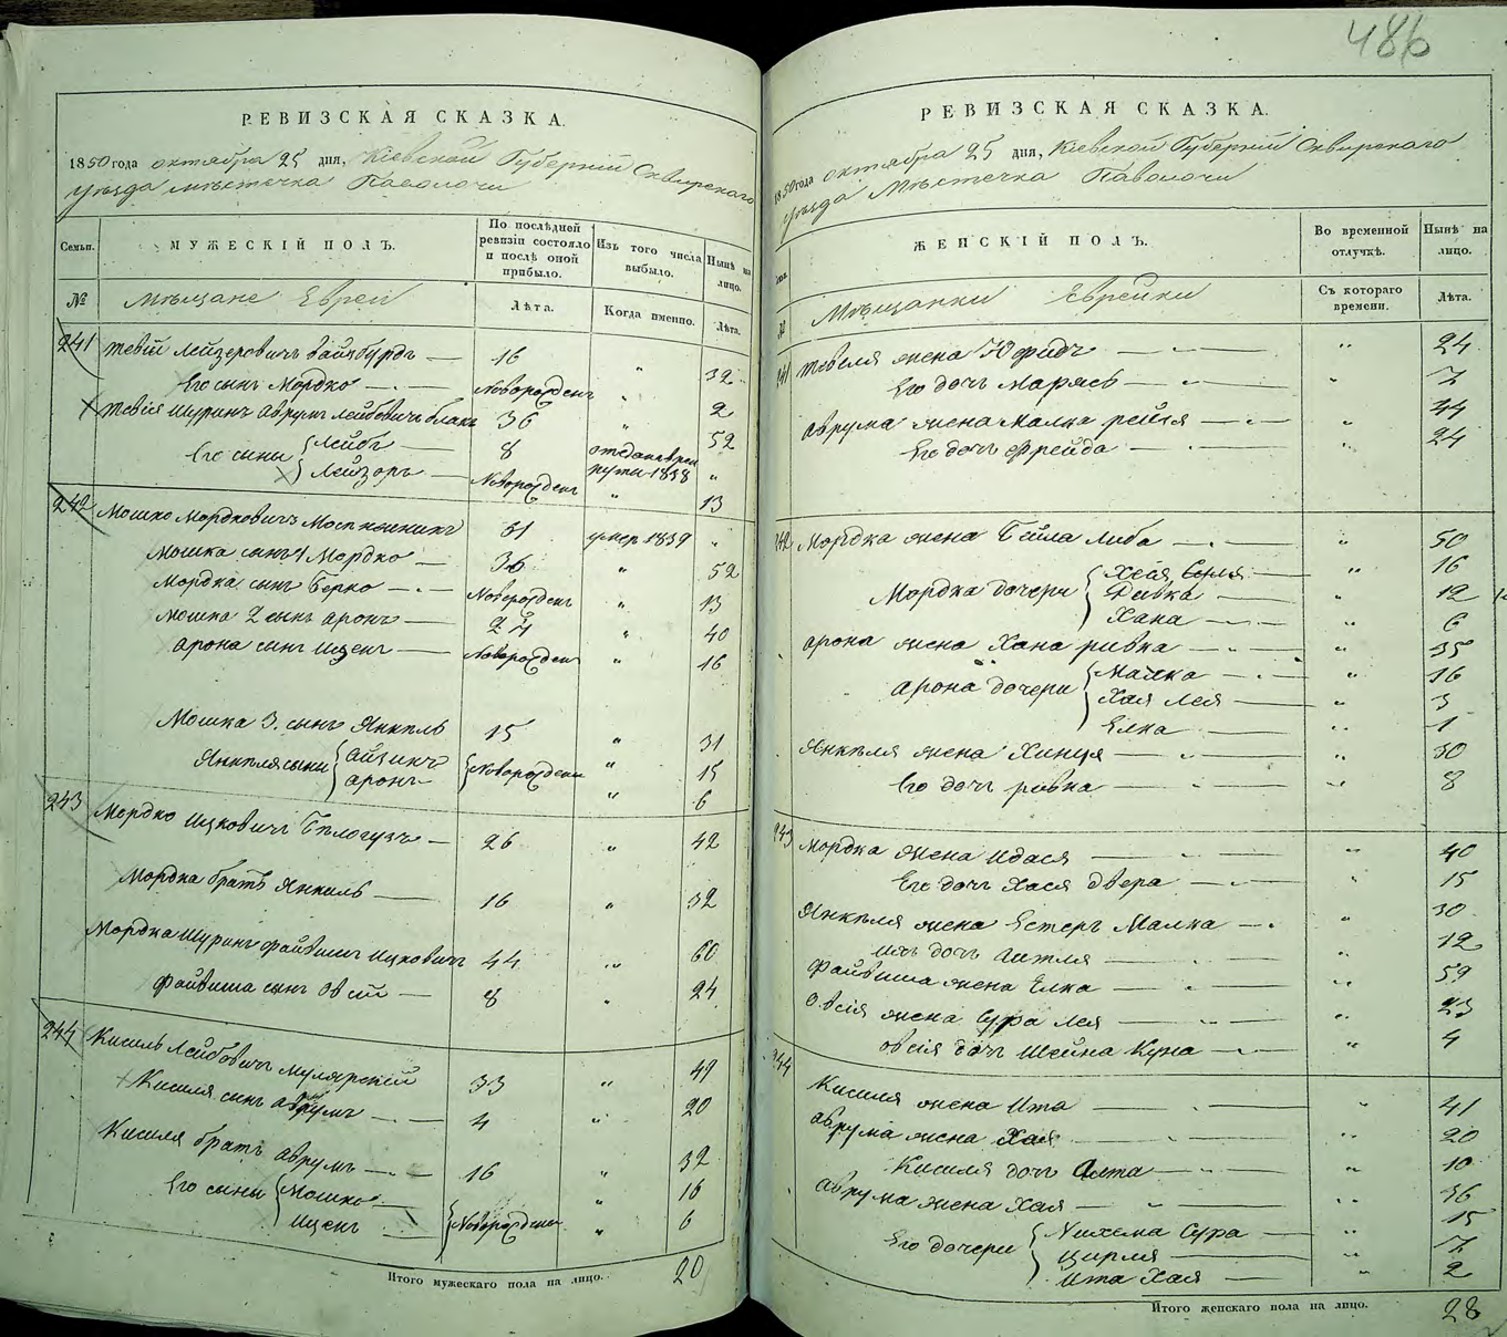 486
РЕВИЗСКАЯ СКАЗКА.
1850 года октября 25 дня, Кіевской Губерніи Сквирскаго
уѣзда мѣстечка Паволочи
Семьи.
МУЖЕСКІЙ ПОЛЪ.
По послѣдней ревизіи состояло и послѣ оной прибыло.
Изъ того числа выбыло.
Нынѣ на лицо.
№
Мѣщане Евреи
Лѣта.
Когда именно.
Лѣта.
241 Тевій Лейзеровичъ Вайнбурдъ — 16 " 32
Его сынъ Мордко — новорожденъ " 2
Тевія Шуринъ Аврумъ Лейбовичъ 36 " 52
Его сыны Лейбъ — 8 отданъ в рекруты 1838 "
Лейзоръ — Новорожденъ " 13
242 Мошко Мордковичъ 51 умер 1839 "
Мошка сынъ 1 Мордко — 36 " 52
Мордка сынъ Берко — Новорожденъ " 13
Мошка 2 сынъ Аронъ — 24 " 40
Арона сынъ Ицекъ — Новорожден " 16
Мошка 3. сынъ Янкель 15 " 31
Янкеля сыны Айзикъ Новорождени " 15
Аронъ " 6
243 Мордко Ицковичъ Бѣлогузъ — 26 " 42
Мордка братъ Янкель — 16 " 32
Мордка Шуринъ Файвишъ Ицковичъ 44 " 60
Файвиша сынъ Овсій — 8 " 24
244 Кисиль Лейбовичъ Мулярскій 33 " 49
Кисиля сынъ Аврумъ — 4 " 20
Кисиля братъ Аврумъ — 16 " 32
Его сыны Мошко — Новорождени " 16
Ицекъ " 6
Итого мужескаго пола на лицо. 20
РЕВИЗСКАЯ СКАЗКА.
1850 года октября 25 дня, Кіевской Губерніи Сквирскаго
уѣзда Мѣстечка Паволочи
ЖЕНСКІЙ ПОЛЪ.
Во временной отлучкѣ.
Нынѣ на лицо.
Мѣщанки Еврейки
Съ котораго времени.
Лѣта.
241 Тевеля жена Юфидъ — " 24
Его дочь Марясь — " 7
Аврума жена Малка Рейзя — " 44
Его дочь Фрейда — " 24
242 Мордка жена Бейла Либа — " 50
Мордка дочери Хая Сура — " 16
Ривка — " 12
Хана — " 6
Арона жена Хана Ривка — " 35
Арона дочери Малка — " 16
Хая Лея — " 3
Елка — " 1
Янкеля жена Хинця — " 30
Его дочь Ривка — " 8
243 Мордка жена Идася — " 40
Его дочь Хася Двера — " 15
Янкеля жена Естеръ Малка — " 30
Ихъ дочь Гитля — " 12
Файвиша жена Елка — " 59
Овсія жена Сура Лея — " 23
Овсія дочь Шейна Куна — " 4
244 Кисиля жена Ита — " 41
Аврума жена Хая — " 20
Кисиля дочь — " 10
Аврума жена Хая — " 36
Его дочери Нихема Сура — " 15
Цирля — " 7
Ита Хая — " 2
Итого женскаго пола на лицо. 28